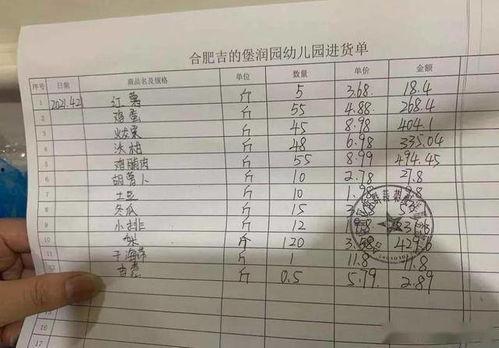 合肥吉的堡润园幼儿园进货单
序号 日期 商品名及规格 单位 数量 单价 金额
1 2021.4.2 红薯 斤 5 3.68 18.4
2 鸡蛋 斤 55 4.88 268.4
3 斤 45 8.98 404.1
4 冰柏 斤 48 6.98 335.04
5 鸡脯肉 斤 55 8.99 494.45
6 胡萝卜 斤 10 2.78 27.8
7 土豆 斤 10 1.98
8 冬瓜 斤 15
9 小排 斤 12
10 梨 斤 120 3.58 429.6
11 干海带 斤 1 11.8 11.8
12 斤 0.5 5.79 2.89
15
16
17